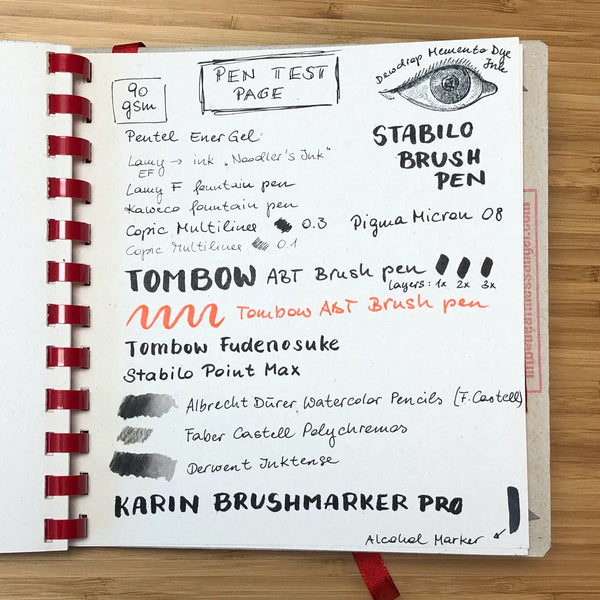 90 gsm
PEN TEST
PAGE
Dewdrop Memento Dye
Ink
Pentel EnerGel
STABILO
BRUSH
PEN
Lamy → ink „Noodler's Ink"
EF
Lamy F fountain pen
Kaweco fountain pen
Copic Multiliner 0.3 Pigma Micron 08
Copic Multiliner 0.1
TOMBOW ABT Brush pen
Layers: 1x 2x 3x
Tombow ABT Brush pen
Tombow Fudenosuke
Stabilo Point Max
Albrecht Dürer Watercolor Pencils (F. Castell)
Faber Castell Polychromos
Derwent Inktense
KARIN BRUSHMARKER PRO
Alcohol Marker